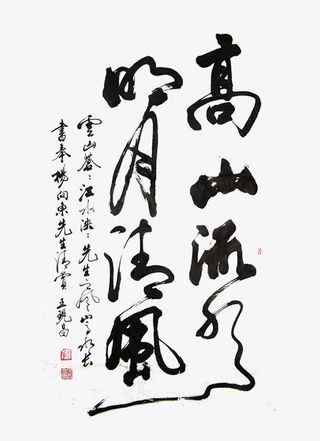 高山流水
明月清風
雲山蒼〻江水泱〻先生之風山高水長
書奉楊向東先生清賞